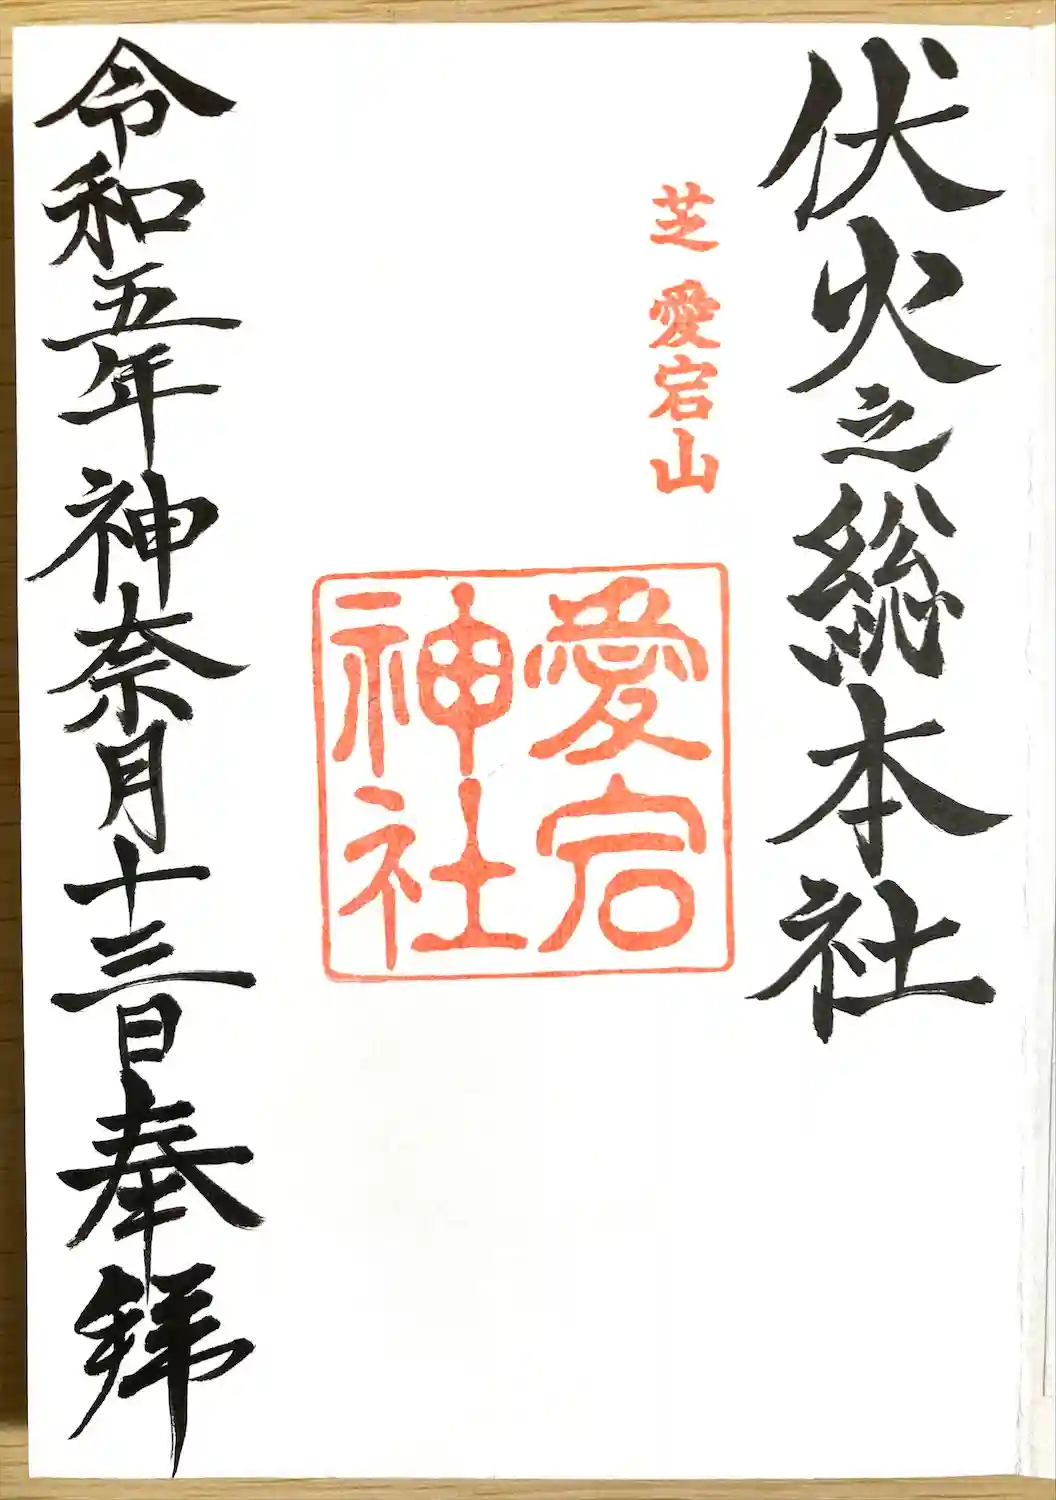 伏火之総本社
芝 愛宕山
愛宕
神社
令和五年神奈月十三日奉拝